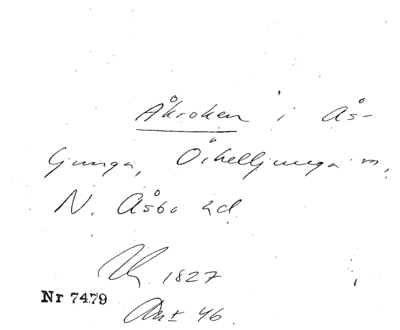 Åkroken i Ås-
ljunga, Örkelljunga sn,
N. Åsbo hd
1827
Nr 7479
46.